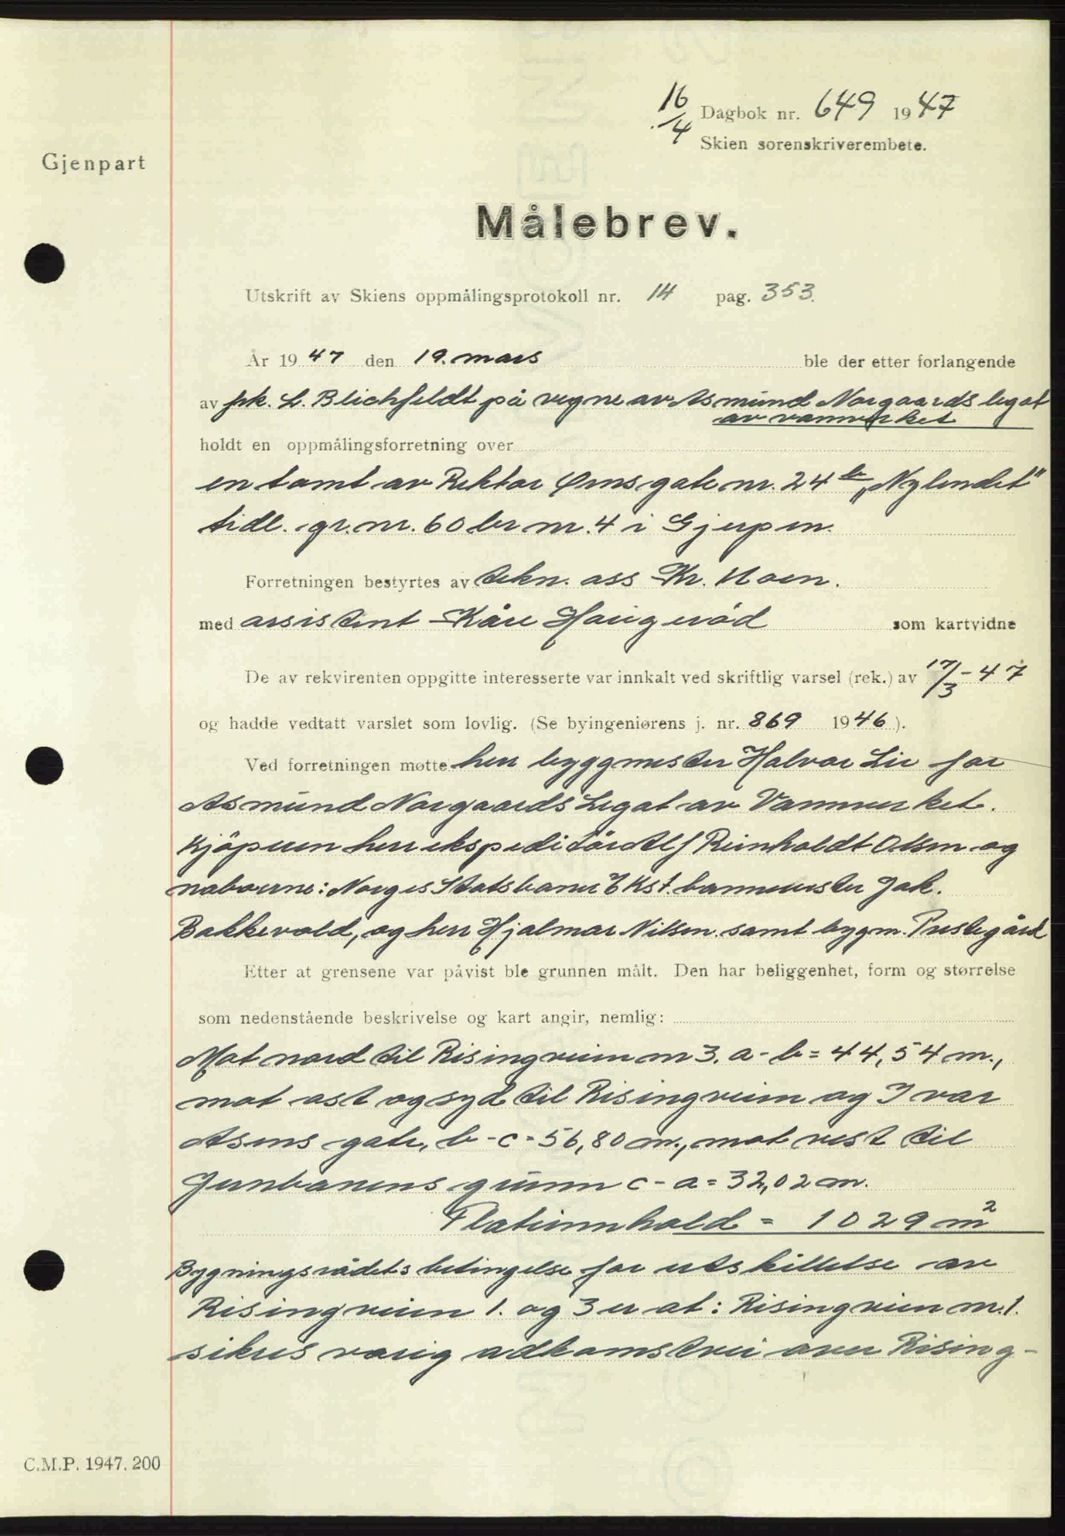 16/4 Dagbok nr. 649 1947
Skien sorenskriverembete.
Gjenpart
Målebrev.
Utskrift av Skiens oppmålingsprotokoll nr. 14 pag. 353.
År 1947 den 19. mars ble der etter forlangende
av frk. L. Blichfeldt på vegne av Asmund Norgaards legat
av vanverket
holdt en oppmålingsforretning over
en tomt av Rektor Ørnsgate nr. 24 b "Nylendet"
tidl. gr. nr. 60 br nr. 4 i Gjerpen.
Forretningen bestyrtes av tekn. ass Kr. Moen.
med assistent Kåre Haugerød som kartvidne
De av rekvirenten oppgitte interesserte var innkalt ved skriftlig varsel (rek.) av 17/3-47
og hadde vedtatt varslet som lovlig. (Se byingeniørens j. nr. 869 1946).
Ved forretningen møtte herr byggmester Halvor Lie for
Asmund Norgaards Legat av Vanverket.
Kjöperen herr ekspeditör Alf Reinholdt Olsen og
naboerne: Norges Statsbaner banemester Jak.
Bakkevold, og herr Hjalmar Nilsen samt bygm. Prestegård
Etter at grensene var påvist ble grunnen målt. Den har beliggenhet, form og størrelse
som nedenstående beskrivelse og kart angir, nemlig:
Mot nord til Risingveien nr 3. a-b = 44,54 m.,
mot øst og syd til Risingveien og Ivar
Åsens gate, b-c = 56,80 m., mot vest til
Jernbanens grunn c-a = 32,02 m.
Flateinnhold = 1029 m²
Bygningsrådets betingelse for utskillelse av
Risingveien 1. og 3 er at: Risingveien nr. 1.
sikres varig adkomstvei over Rising-
C.M.P. 1947. 200